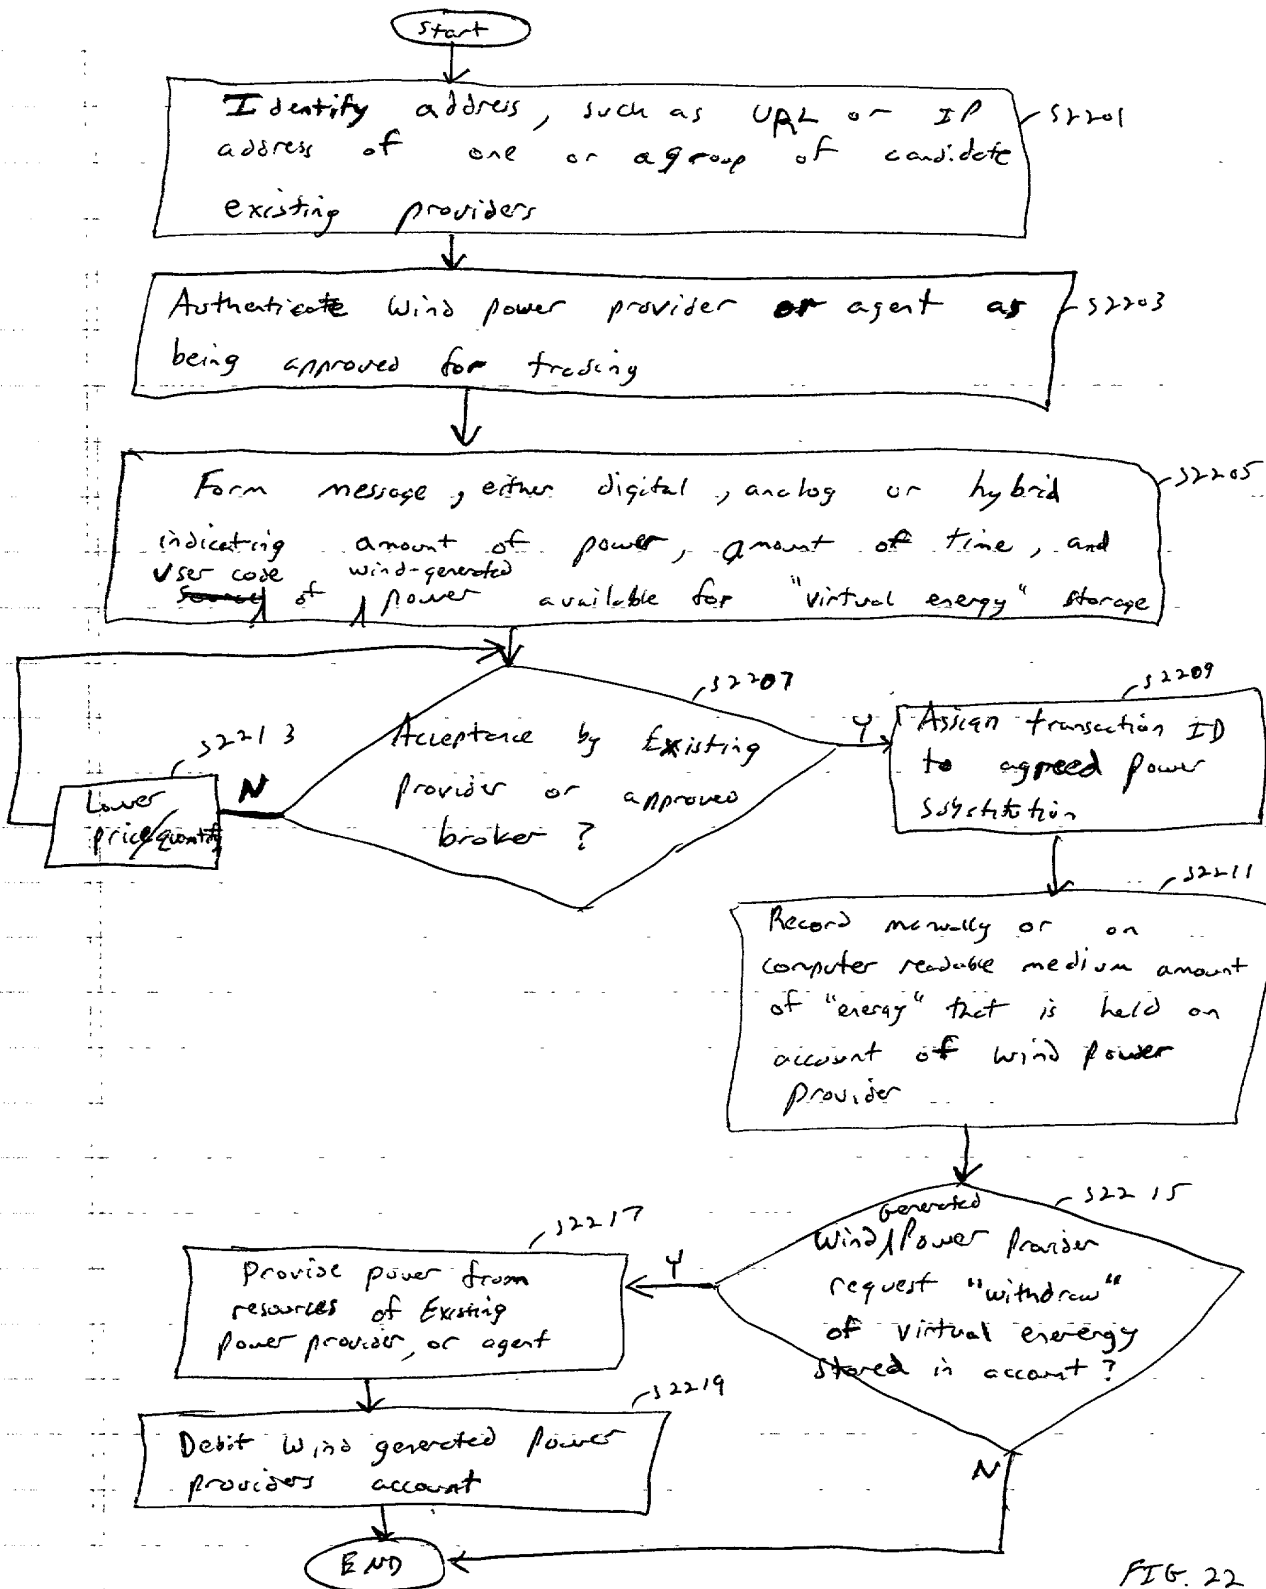 Start
Identify address, such as URL or IP
address of one or a group of candidate
existing providers
S2201
Authenticate Wind power provider or agent as
being approved for trading
S2203
Form message, either digital, analog or hybrid
indicating amount of power, amount of time, and
User code wind-generated
of power available for "virtual energy" storage
S2205
S2207
Acceptance by Existing
Provider or approved
broker ?
Y
N
S2209
Assign transaction ID
to agreed power
substitution
S2213
Lower
price/quantity
S2211
Record manually or on
computer readable medium amount
of "energy" that is held on
account of wind power
provider
S2215
generated
Wind Power Provider
request "withdraw"
of virtual enerergy
stored in account ?
Y
N
S2217
Provide power from
resources of Existing
power provider, or agent
S2219
Debit Wind generated Power
providers account
END
FIG. 22